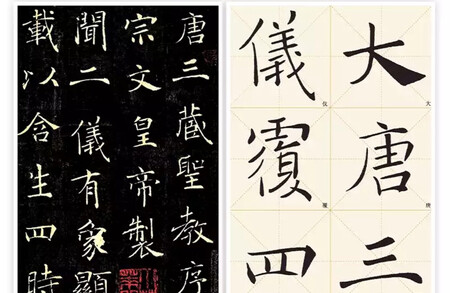 唐三藏聖教序
宗文皇帝製
聞二儀有象顯
載以含生四時
大唐三
儀覆四
大
唐
仪
覆